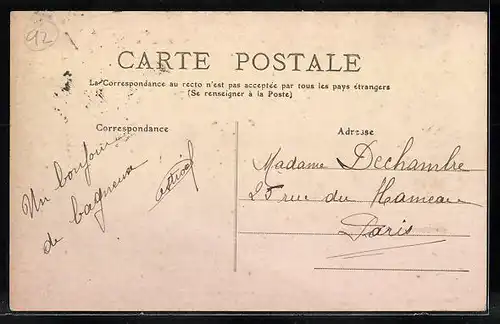 92
CARTE POSTALE
La Correspondance au recto n'est pas acceptée par tous les pays étrangers
(Se renseigner à la Poste)
Correspondance
Un bonjour
de bagneux
Adresse
Madame Dechambre
25 rue du Hameau
Paris